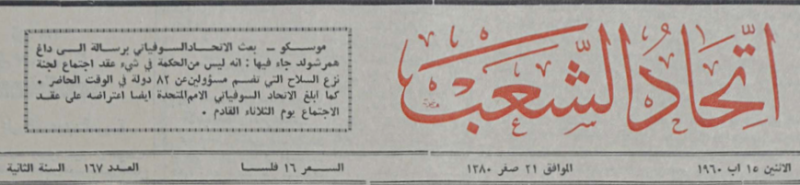 اتحاد الشعب
موسكو ـ بعث الاتحاد السوفياتي برسالة الى داغ
همرشولد جاء فيها : انه ليس من الحكمة في شيء عقد اجتماع لجنة
نزع السلاح التي تضم مسؤولين عن ٨٢ دولة في الوقت الحاضر .
كما ابلغ الاتحاد السوفياتي الامم المتحدة ايضا اعتراضه على عقد
الاجتماع يوم الثلاثاء القادم .
الاثنين ١٥ اب ١٩٦٠ الموافق ٢١ صفر ١٣٨٠ السعر ١٦ فلسا العدد ١٦٧ السنة الثانية